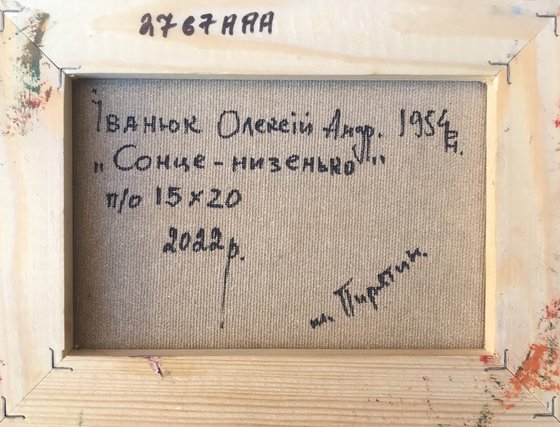 2767AAA
Іванюк Олексій Андр. 1954 р.н.
„Сонце-низенько"
п/о 15×20
2022р.
м. Пирятин.